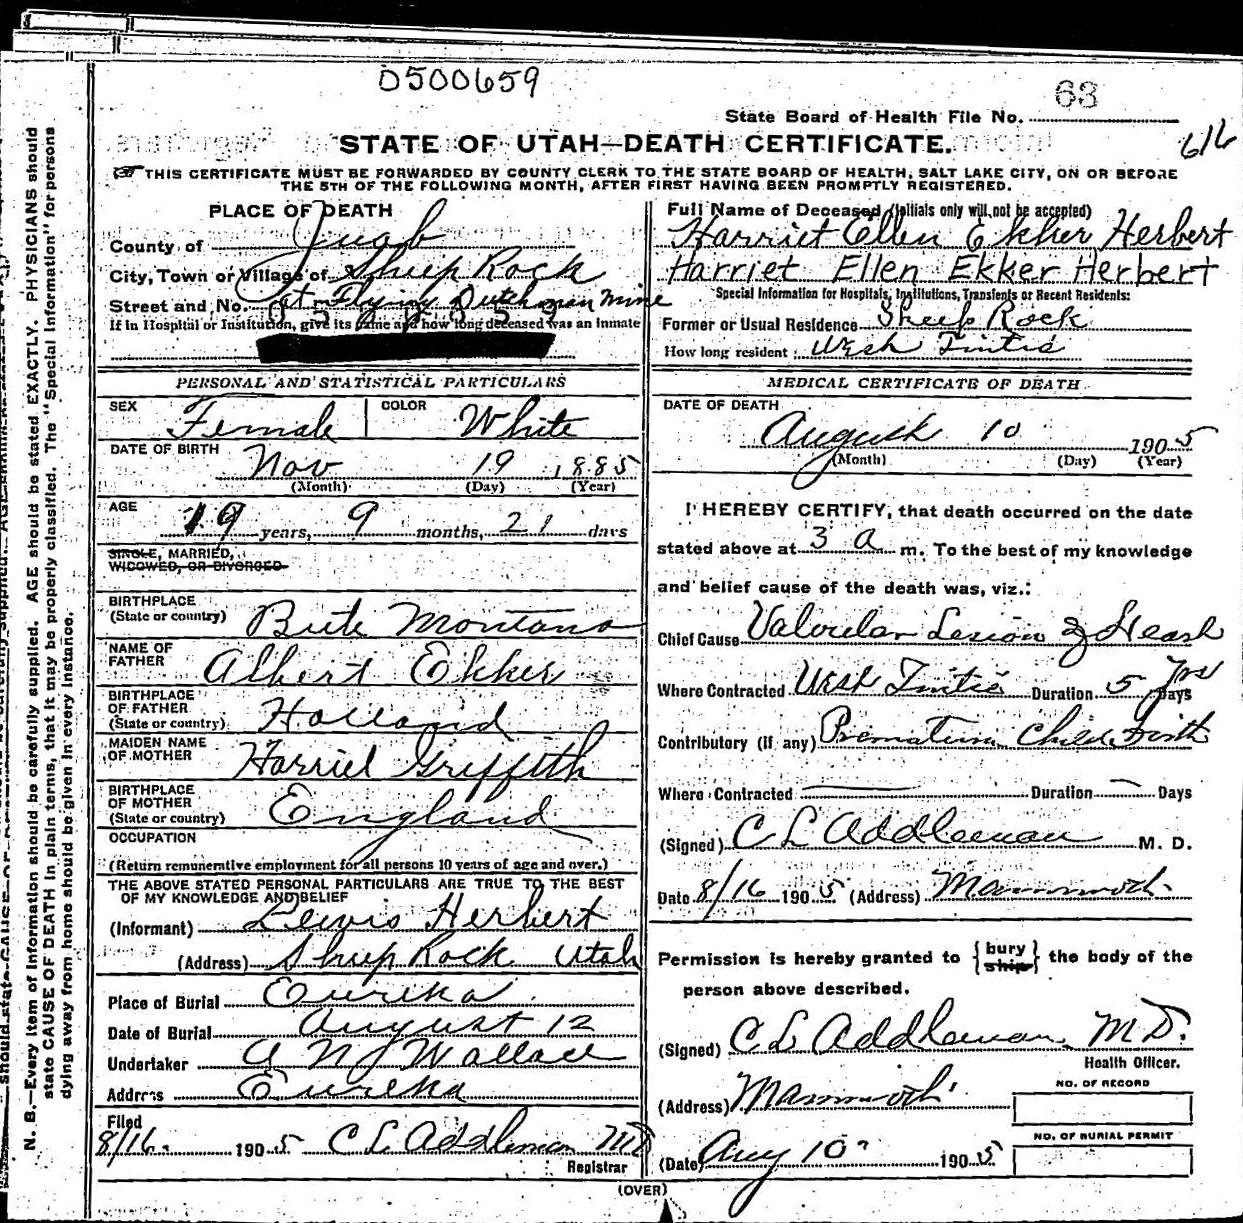 0500659
63
State Board of Health File No.
616
STATE OF UTAH—DEATH CERTIFICATE.
THIS CERTIFICATE MUST BE FORWARDED BY COUNTY CLERK TO THE STATE BOARD OF HEALTH, SALT LAKE CITY, ON OR BEFORE
THE 5TH OF THE FOLLOWING MONTH, AFTER FIRST HAVING BEEN PROMPTLY REGISTERED.
PLACE OF DEATH
County of Juab
City, Town or Village of Sheep Rock
Street and No. At Flying Dutchman Mine
If in Hospital or Institution, give its name and how long deceased was an inmate
PERSONAL AND STATISTICAL PARTICULARS
SEX Female COLOR White
DATE OF BIRTH Nov 19 1885
(Month) (Day) (Year)
AGE 19 years, 9 months, 21 days
SINGLE, MARRIED,
WIDOWED, OR DIVORCED
BIRTHPLACE
(State or country) Bute Montana
NAME OF
FATHER Albert Ekker
BIRTHPLACE
OF FATHER
(State or country) Holland
MAIDEN NAME
OF MOTHER Harriet Griffith
BIRTHPLACE
OF MOTHER
(State or country) England
OCCUPATION
(Return remunerative employment for all persons 10 years of age and over.)
THE ABOVE STATED PERSONAL PARTICULARS ARE TRUE TO THE BEST
OF MY KNOWLEDGE AND BELIEF
(Informant) Lewis Herbert
(Address) Sheep Rock Utah
Place of Burial Eureka
Date of Burial August 12
Undertaker A N Wallace
Address Eureka
Filed
8/16 1905 C L Addleman MD
Registrar
Full Name of Deceased (Initials only will not be accepted)
Harriet Ellen Ekker Herbert
Harriet Ellen Ekker Herbert
Special Information for Hospitals, Institutions, Transients or Recent Residents:
Former or Usual Residence Sheep Rock
How long resident West Tintic
MEDICAL CERTIFICATE OF DEATH
DATE OF DEATH
August 10 1905
(Month) (Day) (Year)
I HEREBY CERTIFY, that death occurred on the date
stated above at 3 a m. To the best of my knowledge
and belief cause of the death was, viz.:
Chief Cause Valvular Lesion of Heart
Where Contracted West Tintic Duration 5 yrs Days
Contributory (if any) Premature Child birth
Where Contracted — Duration — Days
(Signed) C L Addleman M. D.
Date 8/16 1905 (Address) Mammoth
Permission is hereby granted to { bury ship } the body of the
person above described.
(Signed) C L Addleman, M D.
Health Officer.
(Address) Mammoth
NO. OF RECORD
NO. OF BURIAL PERMIT
(Date) Aug 10 1905
(OVER)
N. B.—Every item of information should be carefully supplied. AGE should be stated EXACTLY. PHYSICIANS should
state CAUSE OF DEATH in plain terms, that it may be properly classified. The "Special Information" for persons
dying away from home should be given in every instance.